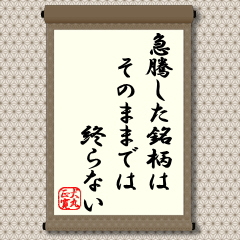 急騰した銘柄は
そのままでは
終らない